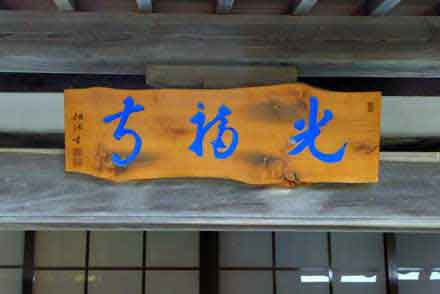 光福寺